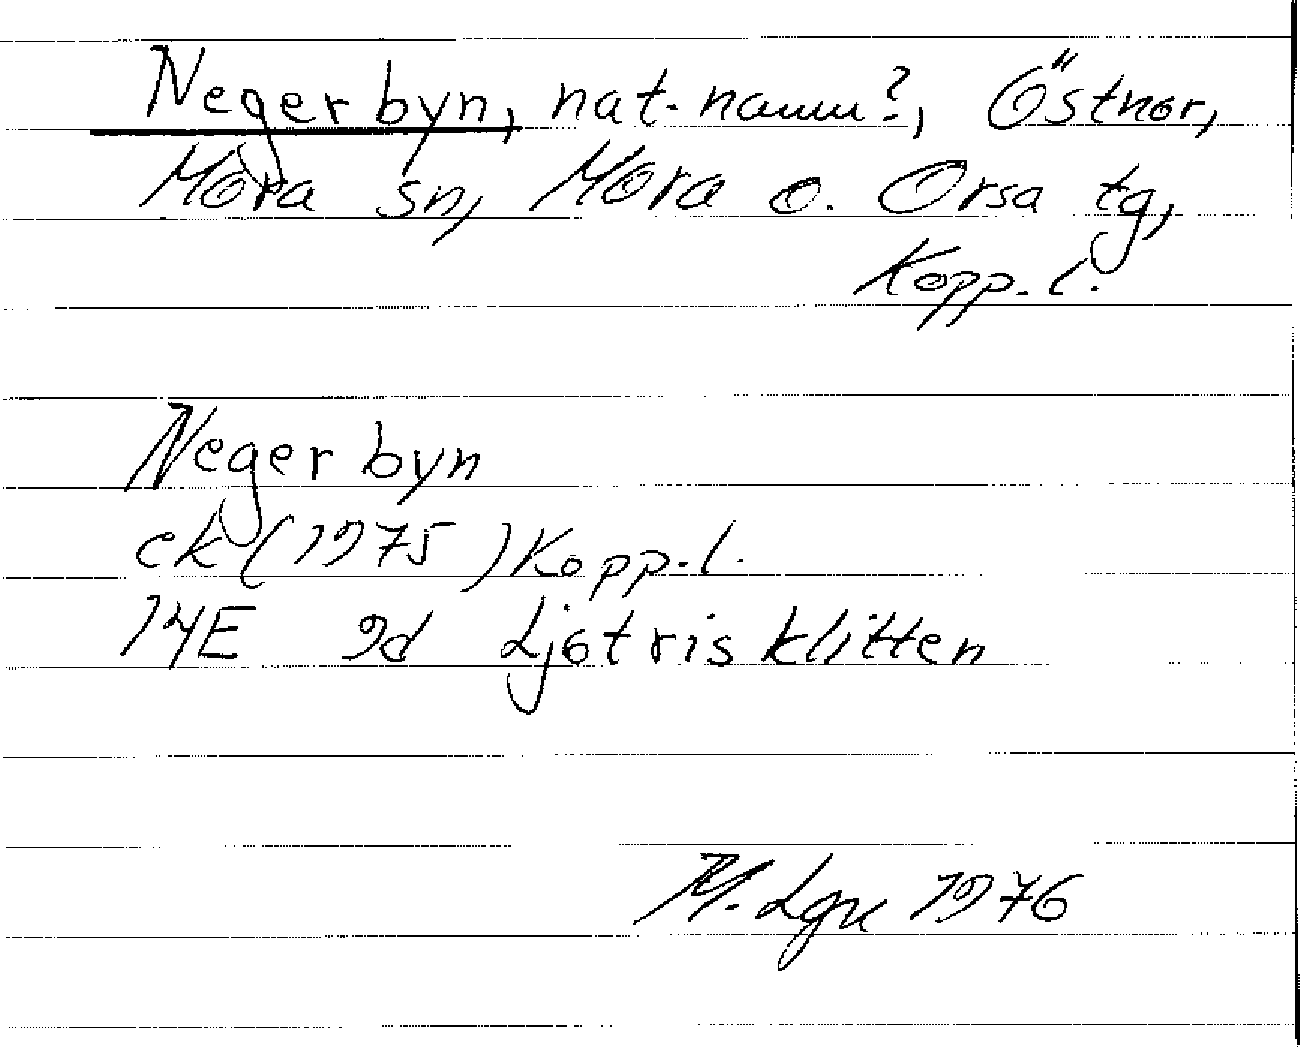 Negerbyn, nat.-namn?, Östnor,
Mora sn, Mora o. Orsa tg,
Kopp. l.
Negerbyn
ek (1975) Kopp. l.
14E 9d Ljötrisklitten
M. Lgn 1976